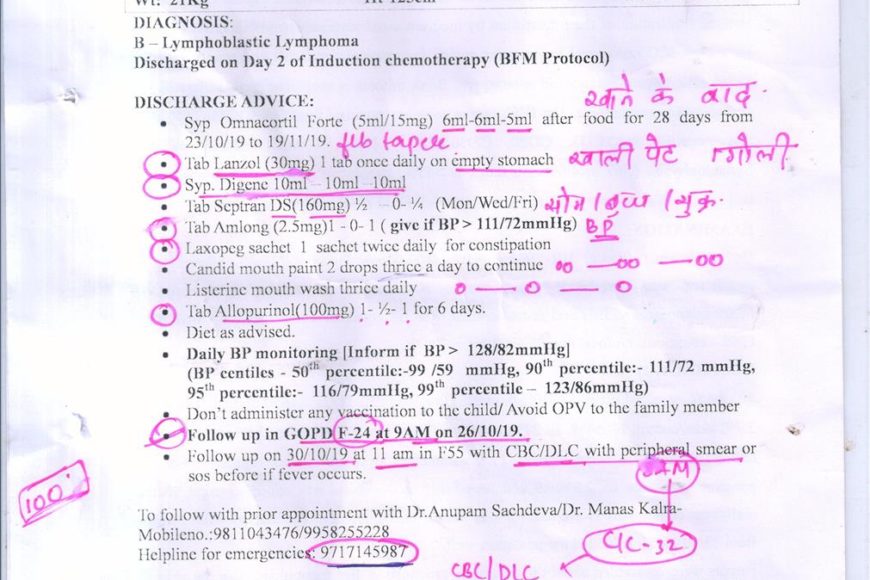 Wt: 21Kg
DIAGNOSIS:
B – Lymphoblastic Lymphoma
Discharged on Day 2 of Induction chemotherapy (BFM Protocol)
DISCHARGE ADVICE:
खाने के बाद
• Syp Omnacortil Forte (5ml/15mg) 6ml-6ml-5ml after food for 28 days from
23/10/19 to 19/11/19. taper
• Tab Lanzol (30mg) 1 tab once daily on empty stomach खाली पेट गोली
• Syp. Digene 10ml – 10ml –10ml
• Tab Septran DS(160mg) ½ – 0- ¼ (Mon/Wed/Fri) सोम/बुध/शुक्र
• Tab Amlong (2.5mg)1 - 0- 1 ( give if BP > 111/72mmHg) BP
• Laxopeg sachet 1 sachet twice daily for constipation
• Candid mouth paint 2 drops thrice a day to continue 00 — 00 — 00
• Listerine mouth wash thrice daily 0 — 0 — 0
• Tab Allopurinol(100mg) 1- ½- 1 for 6 days.
• Diet as advised.
• Daily BP monitoring [Inform if BP > 128/82mmHg]
(BP centiles - 50th percentile:-99 /59 mmHg, 90th percentile:- 111/72 mmHg,
95th percentile:- 116/79mmHg, 99th percentile – 123/86mmHg)
• Don't administer any vaccination to the child/ Avoid OPV to the family member
• Follow up in GOPD F-24 at 9AM on 26/10/19.
• Follow up on 30/10/19 at 11 am in F55 with CBC/DLC with peripheral smear or
sos before if fever occurs.
100
To follow with prior appointment with Dr.Anupam Sachdeva/Dr. Manas Kalra-
Mobileno.:9811043476/9958255228
Helpline for emergencies: 9717145987
CBC/DLC